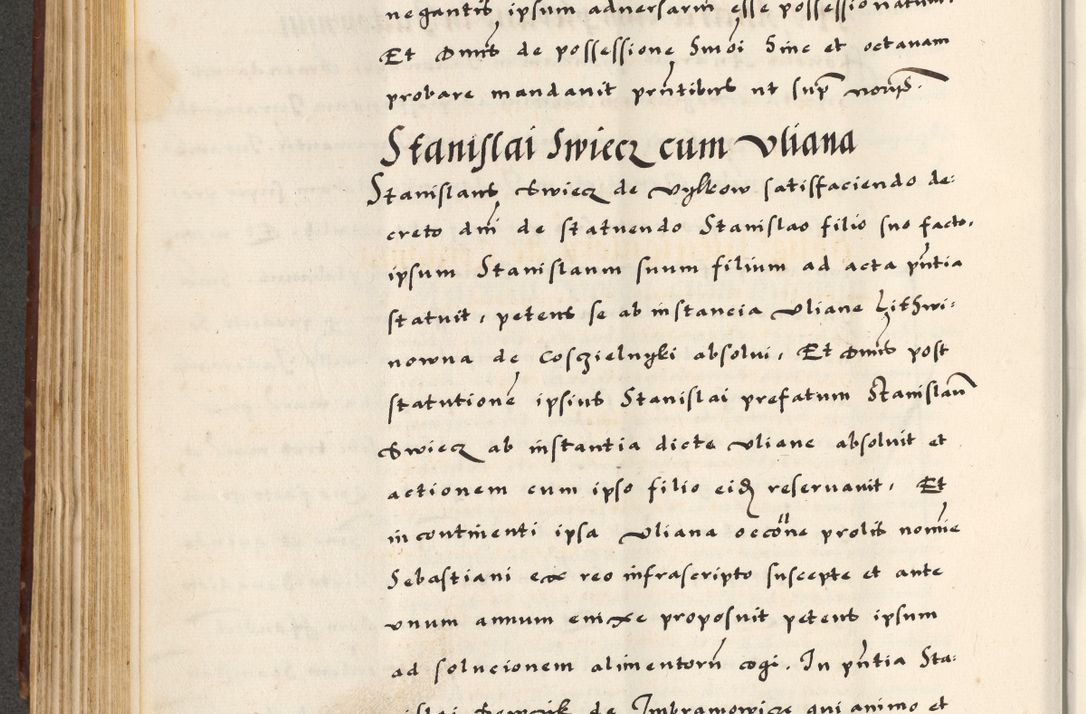 negantis, ipsum adversarin esse possessionatum.
Et dnūs de possessione Smōi Sinc et octavam
probare mandavit pn̄tibus ut sup̄
Stanislai Swiecz cum Vliana
Stanislaus Swiecz de Vylkow satisfaciendo de:
creto dn̄i de statuendo Stanislao filio suo facto,
ipsum Stanislaum suum filium ad acta pn̄tia
statuit, petens se ab instancia Vliane Lithwi:
nowna de Cosczielnyki absolui, Et dnūs post
statutionē ipsius Stanislai prefatum Stanislaū
Swiecz ab instantia dicte Vliane absoluit et
actionem cum ipso filio eidꝫ reservavit, Et
in continenti ipsa Vliana occōne prolis nomīe
Sebastiani ex reo infrascripto suscepte et ante
vnum annum enixe proposuit petens ipsum
ad solucionem alimentorū cogi. In pn̄tia Sta:
nislai de Imbramowicze qui animo et